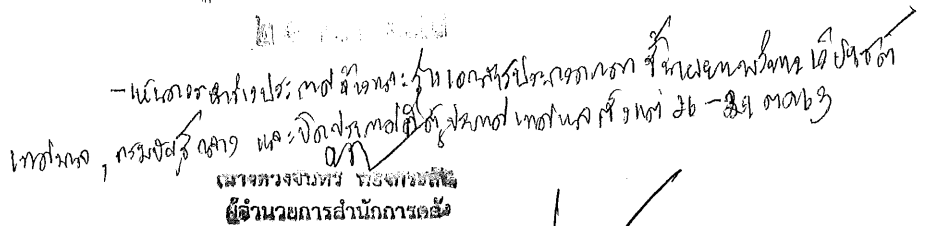 - เห็นควรนำร่างประกาศจ้างและร่างเอกสารประกวดราคา ขึ้นเผยแพร่ทางเว็บไซต์
เทศบาล, กรมบัญชีกลาง และปิดประกาศที่ตู้ประกาศเทศบาล ตั้งแต่ 26 - ตค 63
(นางดวงจันทร์
ผู้อำนวยการสำนักการคลัง